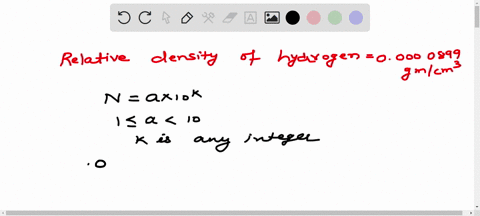 Relative density of hydrogen = 0.0000899
gm/cm³
N = a×10ᵏ
1 ≤ a < 10
K is any integer
.0